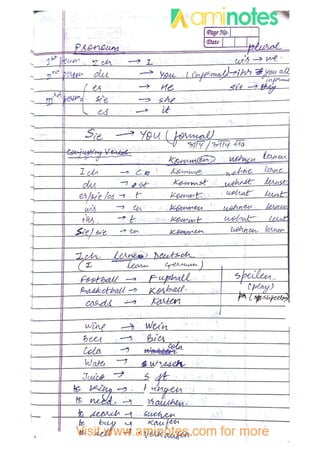 aminotes
Page No.
Date
Pronouns plural
1st person Ich → I wir → we
2nd person du → you (informal) → ihr you all
informal
er → He sie → they
3rd person sie → she
es → it
Sie → you (formal)
conjuging verbs
kommen wohnen lernen
Ich → e komme wohne lerne
du → st kommst wohnst lernst
er/sie/es → t kommt wohnt lernt
wir → en kommen wohnen lernen
ihr → t kommt wohnt lernt
Sie/sie → en kommen wohnen lernen
Ich lerne Deutsch
(I learn German)
Football → Fußball spielen
(play)
Basketball → Korball
cards → Karten
Wine → Wein
Beer → Bier
Cola → cola
Water → wasser
Juice →
to →
to need →
to search → suchen
to buy → kaufen
to sell → verkaufen
Visit www.aminotes.com for more